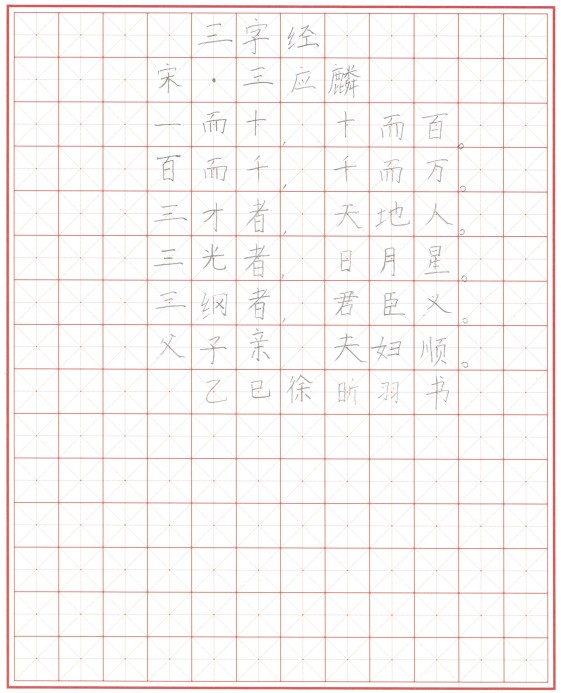 三字经
宋·三应麟
一而十，十而百。
百而千，千而万。
三才者，天地人。
三光者，日月星。
三纲者，君臣义。
父子亲 夫妇顺。
乙巳徐昕羽书